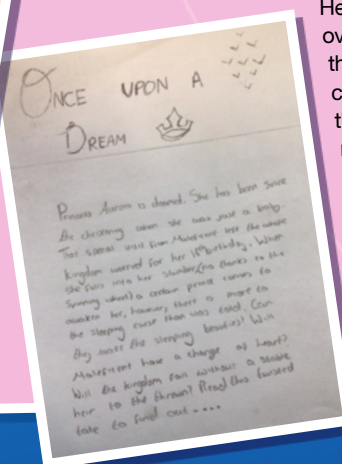 He
ov
th
c
t
r
ONCE UPON A
DREAM
Princess Aurora is doomed. She has been since
the christing when she was just a baby.
That special visit from Maleficent left the whole
kingdom worried for her 16th birthday. When
she falls into her slumber (no thanks to the
spinning wheel) a certain prince comes to
awaken her, however, there is more to
the sleeping curse than was told. Can
they wake the sleeping beauties? Will
Maleficent have a change of heart?
Will the kingdom fall without a
heir to the throne? Read this
tale to find out....